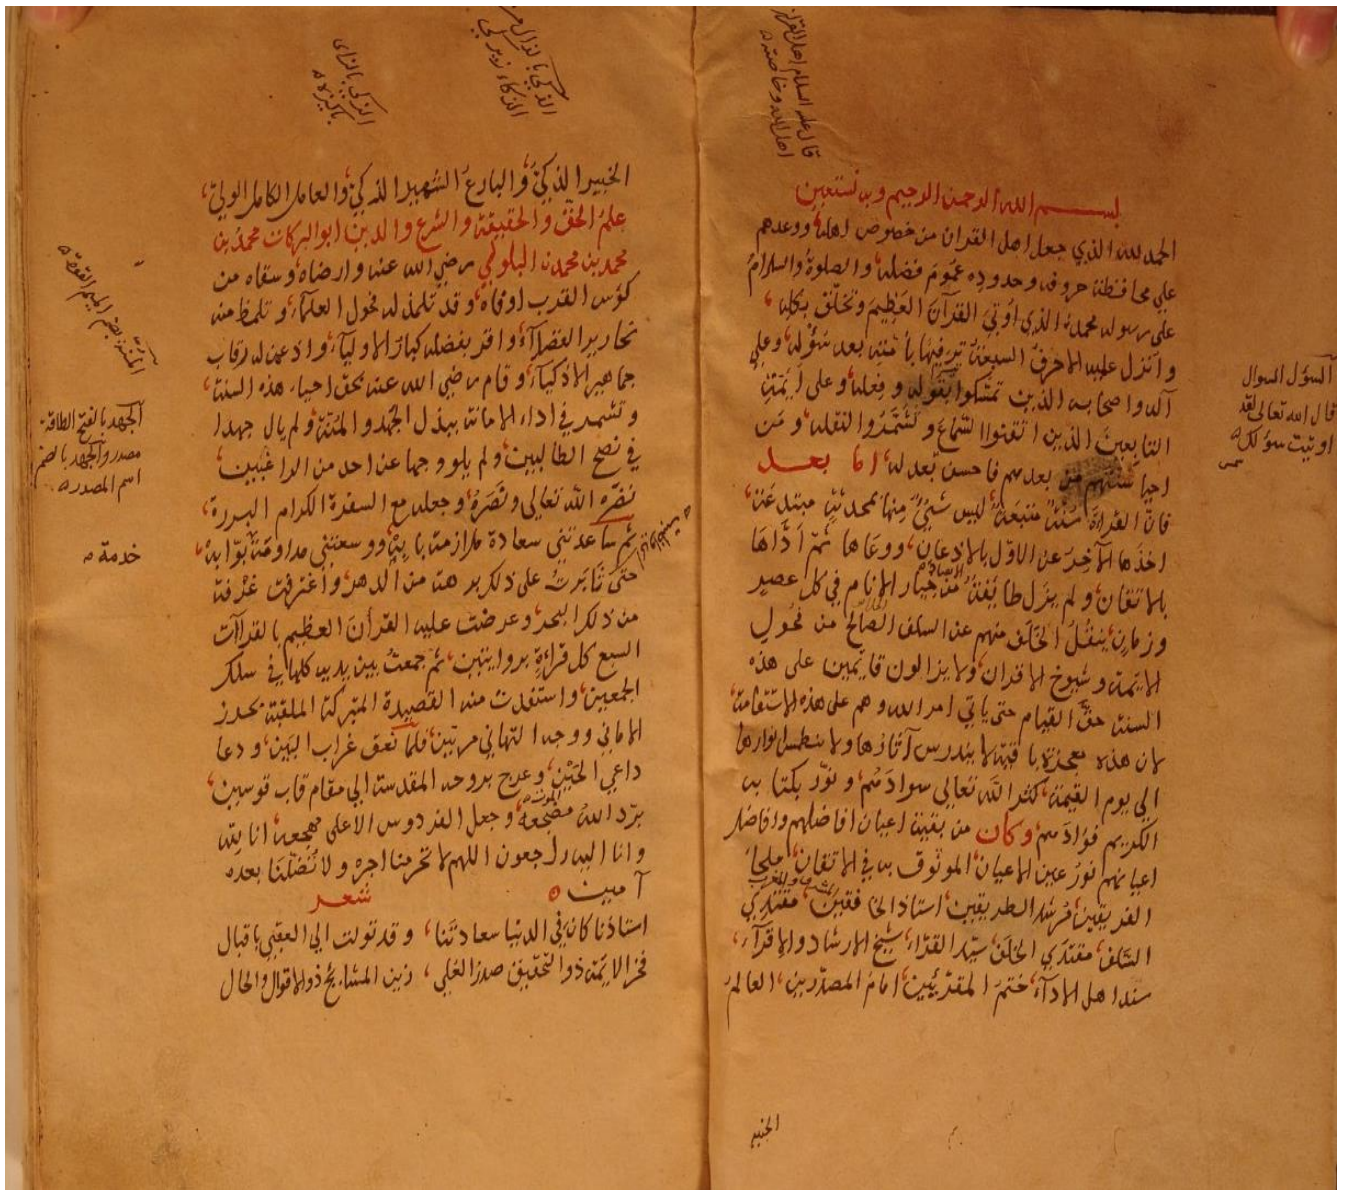 قال عليه السلام اهل القرآن
اهل الله وخاصته
بسم الله الرحمن الرحيم وبه نستعين
الحمد لله الذي جعل اهل القران من خصوص اهله ووعدهم
علي محافظة حروفه وحدوده عموم فضله والصلوة والسلام
على رسوله محمد الذي اوتي القرآن العظيم وتخلق بكله
وانزل عليه الاحرف السبعة بامته بعد سؤله وعلى
آله واصحابه الذين تمسكوا بقوله وفعله وعلى ايمة
التابعين الذين اتقنوا السماع وتشمروا لنقله ومن
احيا سنتهم من بعدهم فاحسن بعدله اما بعد
فان القراءة سنة متبعة ليس شيئ منها بمحدث مبتدعة
اخذها الآخر عن الاول بالاذعان ووعاها ثم اداها
بالاتقان ولم يزل طايفة من خيار الانام في كل عصر
وزمان ينقل الخلف منهم عن السلف الصالح من فحول
الايمة وشيوخ الاقران ولا يزالون قائمين على هذه
السنة حق القيام حتى ياتي امر الله وهم على هذه الاستقامة
لان هذه معجزة باقية لا يندرس آثارها ولا ينطمس انوارها
الي يوم القيمة كثر الله تعالي سوادهم ونور بكتابه
الكريم فؤادهم وكان من بقية اعيان افاضلهم وافاضل
اعيانهم نور عين الاعيان الموثوق به في الاتقان ملجأ
الفريقين مرشد الطريقين استاذ الخافقين مقتدي
السلف مقتدي الخلف سيد القراء شيخ الارشاد والاقرآء
سند اهل الادآء ختم المقرئين امام المصدرين العالم
السؤل السوال
قال الله تعالى لقد
اوتيت سؤلك
الذكي بالذال من
الذكاء زيركي
الزكي بالزاي
پاكيزه
الخبير الذكي والبارع الشهير الزكي والعامل الكامل الولي
علم الحق والحقيقة والشرع والدين ابو البركات محمد بن
محمد بن محمد رضي الله عنه وارضاه وسقاه من
كؤس القرب اوفاه وقد تلمذ له فحول العلمآء وتلمظ منه
نحارير الفضلآء واقر بفضله كبار الاوليآء واذعن له رقاب
جماهير الاذكيآء وقام رضي الله عنه بحق احياء هذه السنة
وتشمر في اداء الامانة ببذل الجهد والمنة ولم يال جهدا
في نصح الطالبين ولم يلو وجها عن احد من الراغبين
نضره الله تعالى ونصره وجعله مع السفرة الكرام البررة
ثم ساعدتني سعادة ملازمة بابه ووسعتني مداومة بوابه
حتى ثابرت على ذلك برهة من الدهر واغترفت غرفة
من ذلك البحر وعرضت عليه القرآن العظيم بالقراآت
السبع كل قراءة بروايتين ثم جمعت بين يديه كلها في سلك
الجمعين واستفدت منه القصيدة المتبركة الملقبة بحرز
الاماني ووجه التهاني مرتين فلما نعق غراب البين ودعا
داعي الحين وعرج بروحه المقدسة الي مقام قاب قوسين
برد الله مضجعه وجعل الفردوس الاعلى مهجعه انا لله
وانا اليه راجعون اللهم لا تحرمنا اجره ولا تضلنا بعده
آمين شعر
استاذنا كان في الدنيا سعادتنا وقد تولت الي العقبي باقبال
فخر الايمة ذو التحقيق صدر العلي زين المشايخ ذو الاقوال والحال
المنة بضم الميم القوة
الجهد بالفتح الطاقة
مصدر والجهد بالضم
اسم المصدر
خدمة